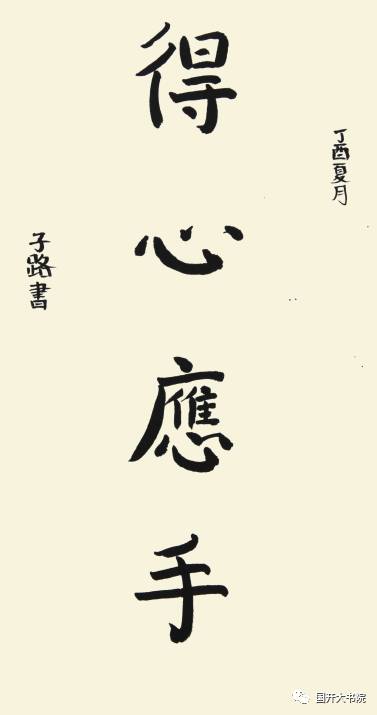 丁酉夏月
得心應手
子路書
国开大书院